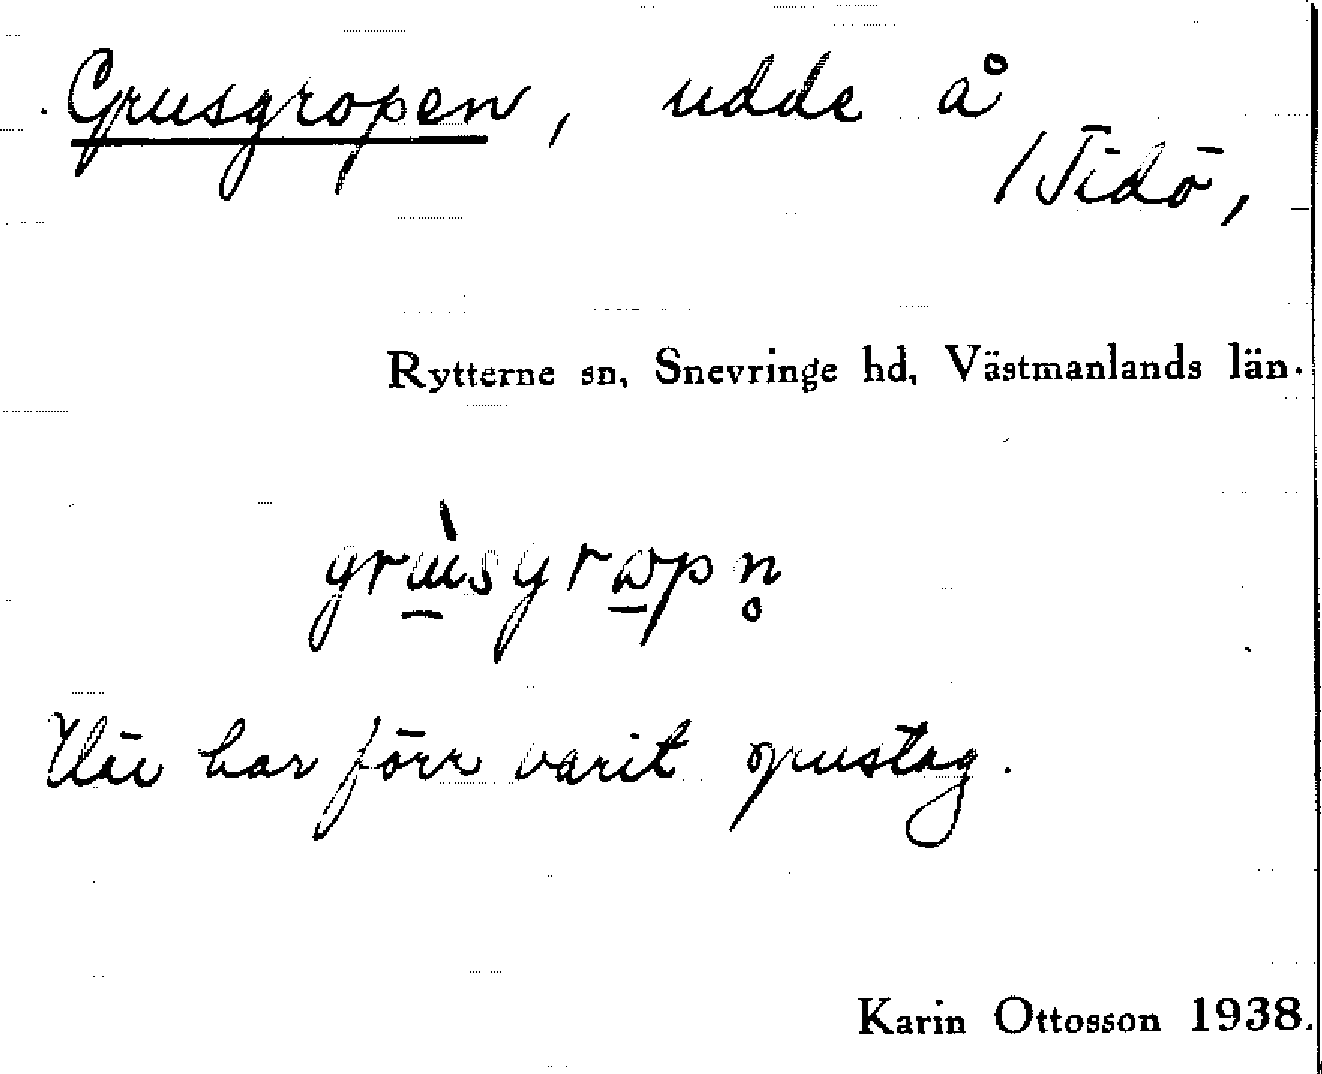 Grusgropen, udde å
/Tidö,
Rytterne sn, Snevringe hd, Västmanlands län.
grùsgrɷpn̥
Här har förr varit grustag.
Karin Ottosson 1938.